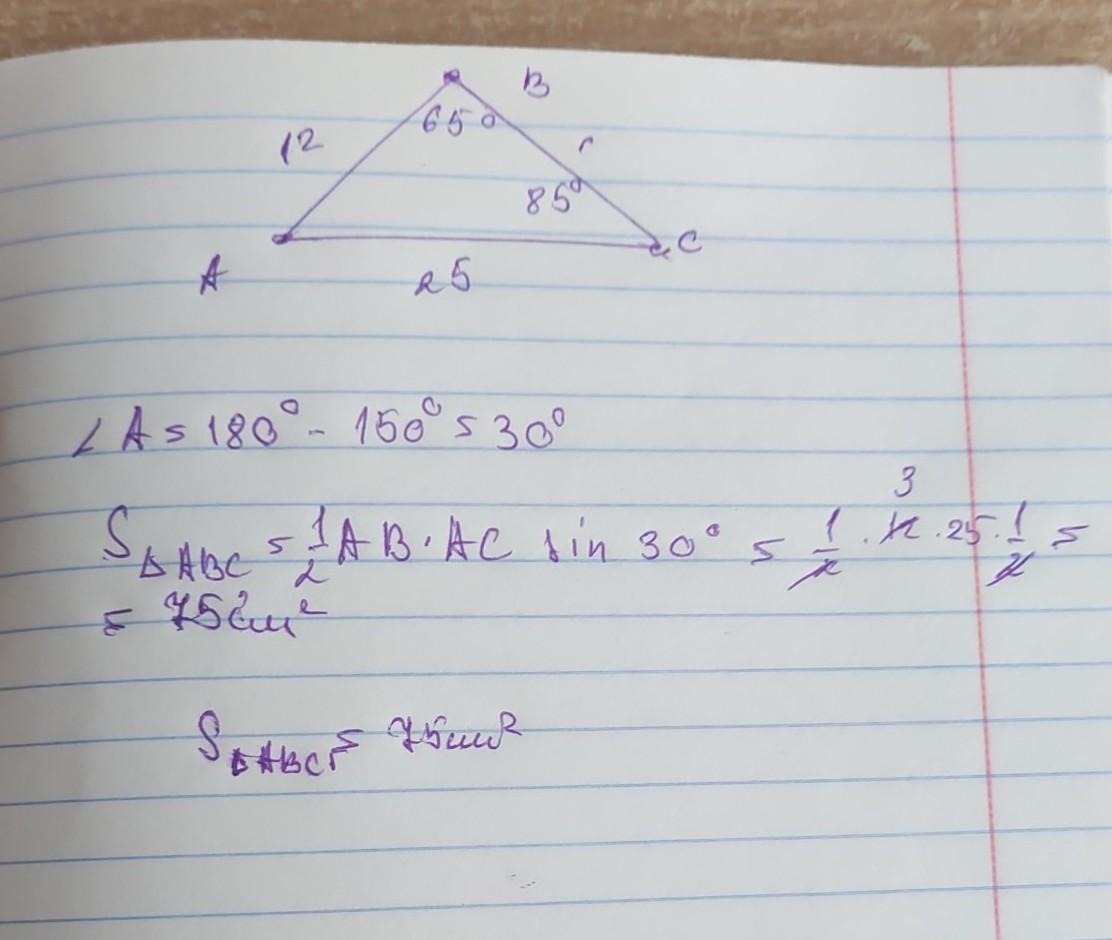 B
65°
12
85°
C
A
25
∠A = 180° - 150° = 30°
3
S△ABC = 1/2 AB · AC sin 30° = 1/2 · 12 · 25 · 1/2 =
= 75 см²
S△ABC = 75 см²